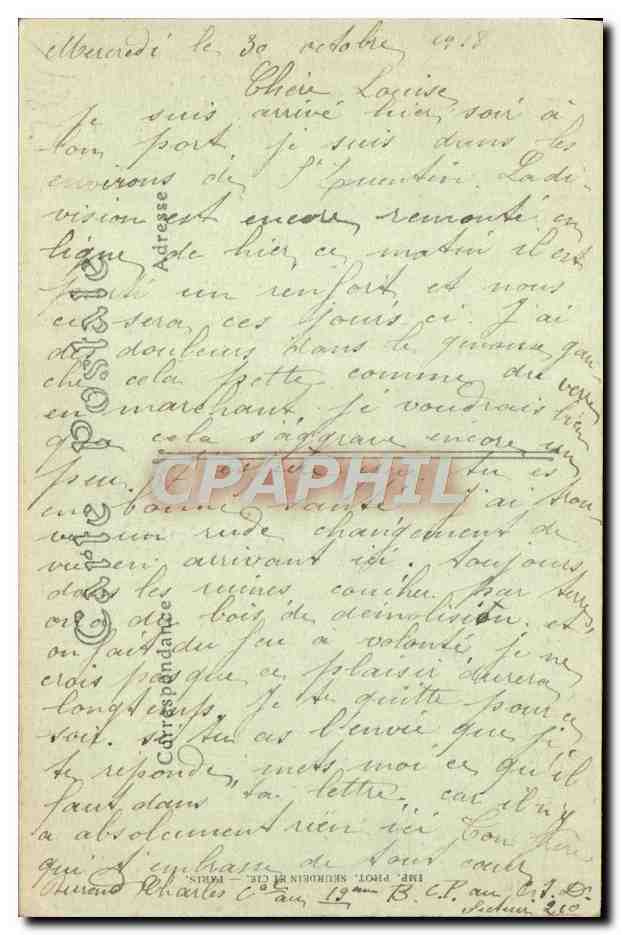 Mercredi le 30 octobre 1918
Chère Louise
Je suis arrivé hier soir à
bon port je suis dans les
environs de St Quentin. La di-
vision est encore remonté en
ligne de hier ce matin il est
parti un renfort et nous
ce sera ces jours ci. J'ai
des douleurs dans le genoux gau-
che cela pette comme du verre
en marchant. je voudrais bien
que cela s'aggrave encore un
peu. J'espère que tu es
en bonne santé j'ai trou-
vé un rude changement de
vie en arrivant ici. toujours
dans les ruines coucher par terre,
on a du bois de démolistion et
on fait du feu a volonté je ne
crois pas que ce plaisir durera
longtemps. Je te quitte pour ce
soir. si tu as l'envie que je
te réponde, mets moi ce qu'il
faut dans ta lettre. car il n'y
a absolument rien ici Ton frère
qui t'embrasse de tout coeur
Charles Cal au 19ème B. C. P. au C. I. D.
Secteur 210
Carte Postale
Correspondance
Adresse
IMP. PHOT. NEURDEIN ET CIE. — PARIS.
CPAPHIL